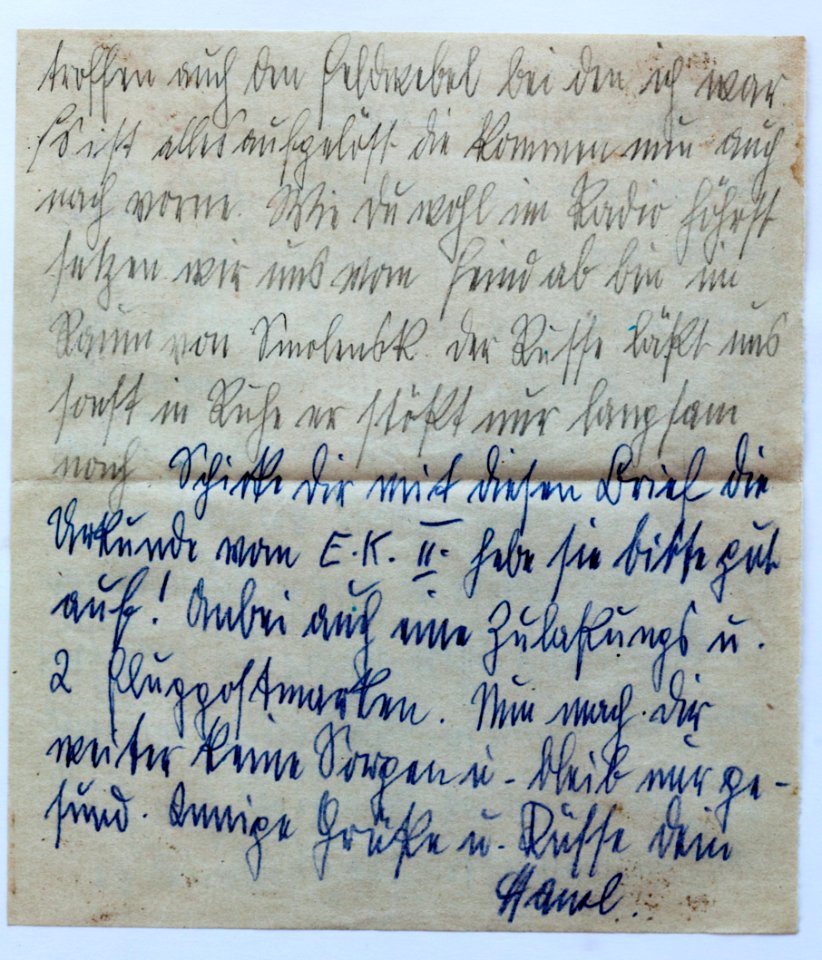 troffen auch den Feldwebel bei den ich war
Es ist alles aufgelöst die kommen nun auch
nach vorne. Wie du wohl im Radio höhrst
setzen wir uns vom Feind ab bin im
Raum von Smolensk der Russe läßt uns
sonst in Ruhe er stößt nur langsam
nach. Schicke dir mit diesen Brief die
Urkunde vom E.K. II. hebe sie bitte gut
auf! Anbei auch eine Zulaßungs u.
2 Flugpostmarken. Nun mach dir
weiter keine Sorgen u. bleib nur ge-
sund. Innige Grüße u. Küsse dein